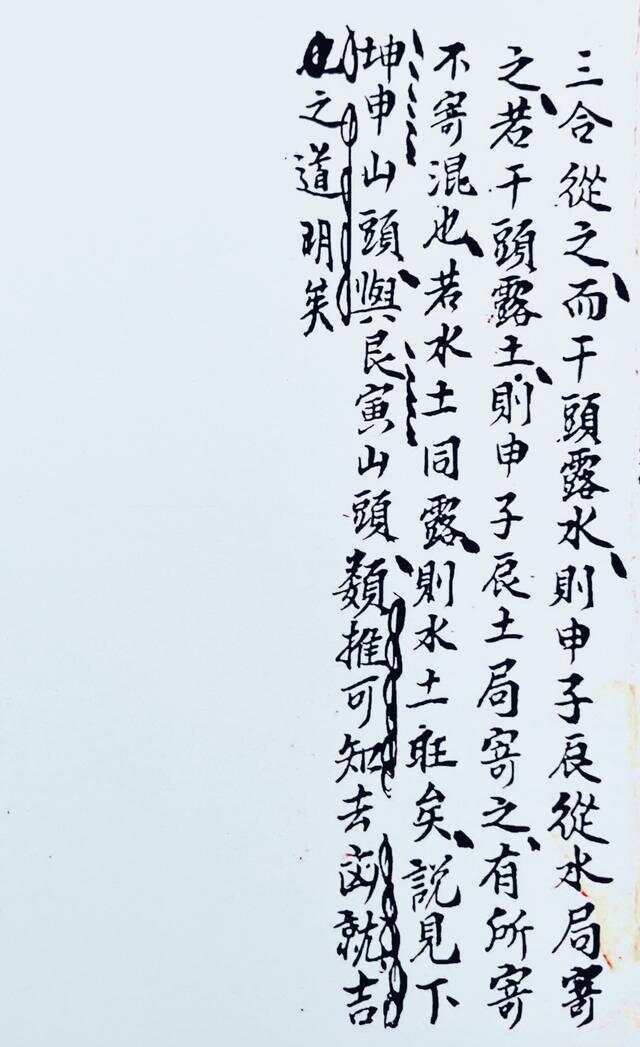 三合從之而干頭露水則申子辰從水局寄
之若干頭露土則申子辰土局寄之有所寄
不寄混也若水土同露則水土旺矣說見下
坤申山頭與艮寅山頭類推可知去凶就吉
之道明矣